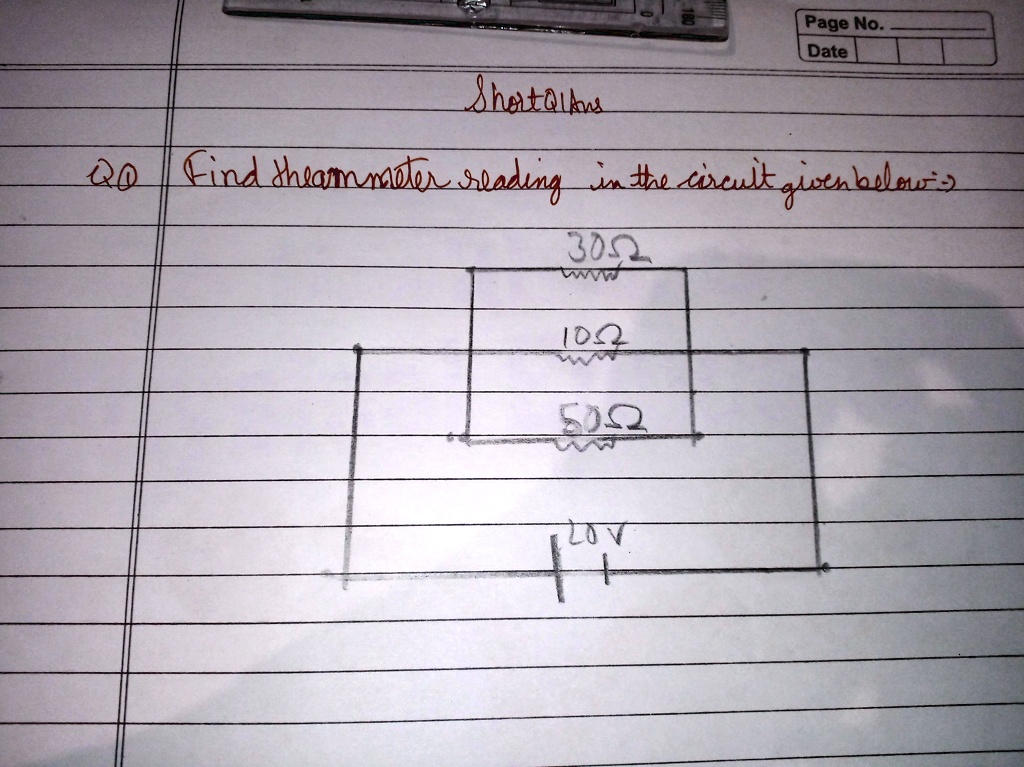 Page No.
Date
Short Q/Ans
Q① Find the ammeter reading in the circuit given below :->
30Ω
10Ω
50Ω
20V
180